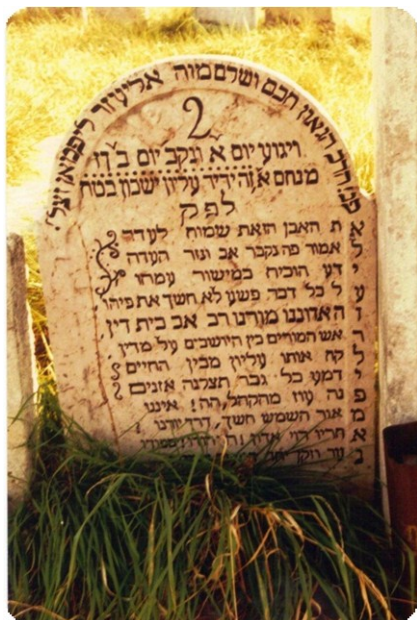 פה הרב הגאון חכם ושלם מוה אליעזר ליפמאן זצל
ויגוע יום א ונקבר יום ב
מנחם אזה ידיד עליון ישכון בטח
לפק
את האבן הזאת שמוה לעדה
אמור פה נקבר אב ונזר העדה
ידע הוכיח במישור עמהו
על כל דבר פשע לא חשך את פיהו
האדוננו מורנו רב אב בית דין
ראש המורים בין היושבים על מדין
לקח אותו עליון מבין החיים
ידמע כל גבר תצלנה אזנים
פנה עוז מהקהל, הה! איננו
מאור השמש חשך, דרך